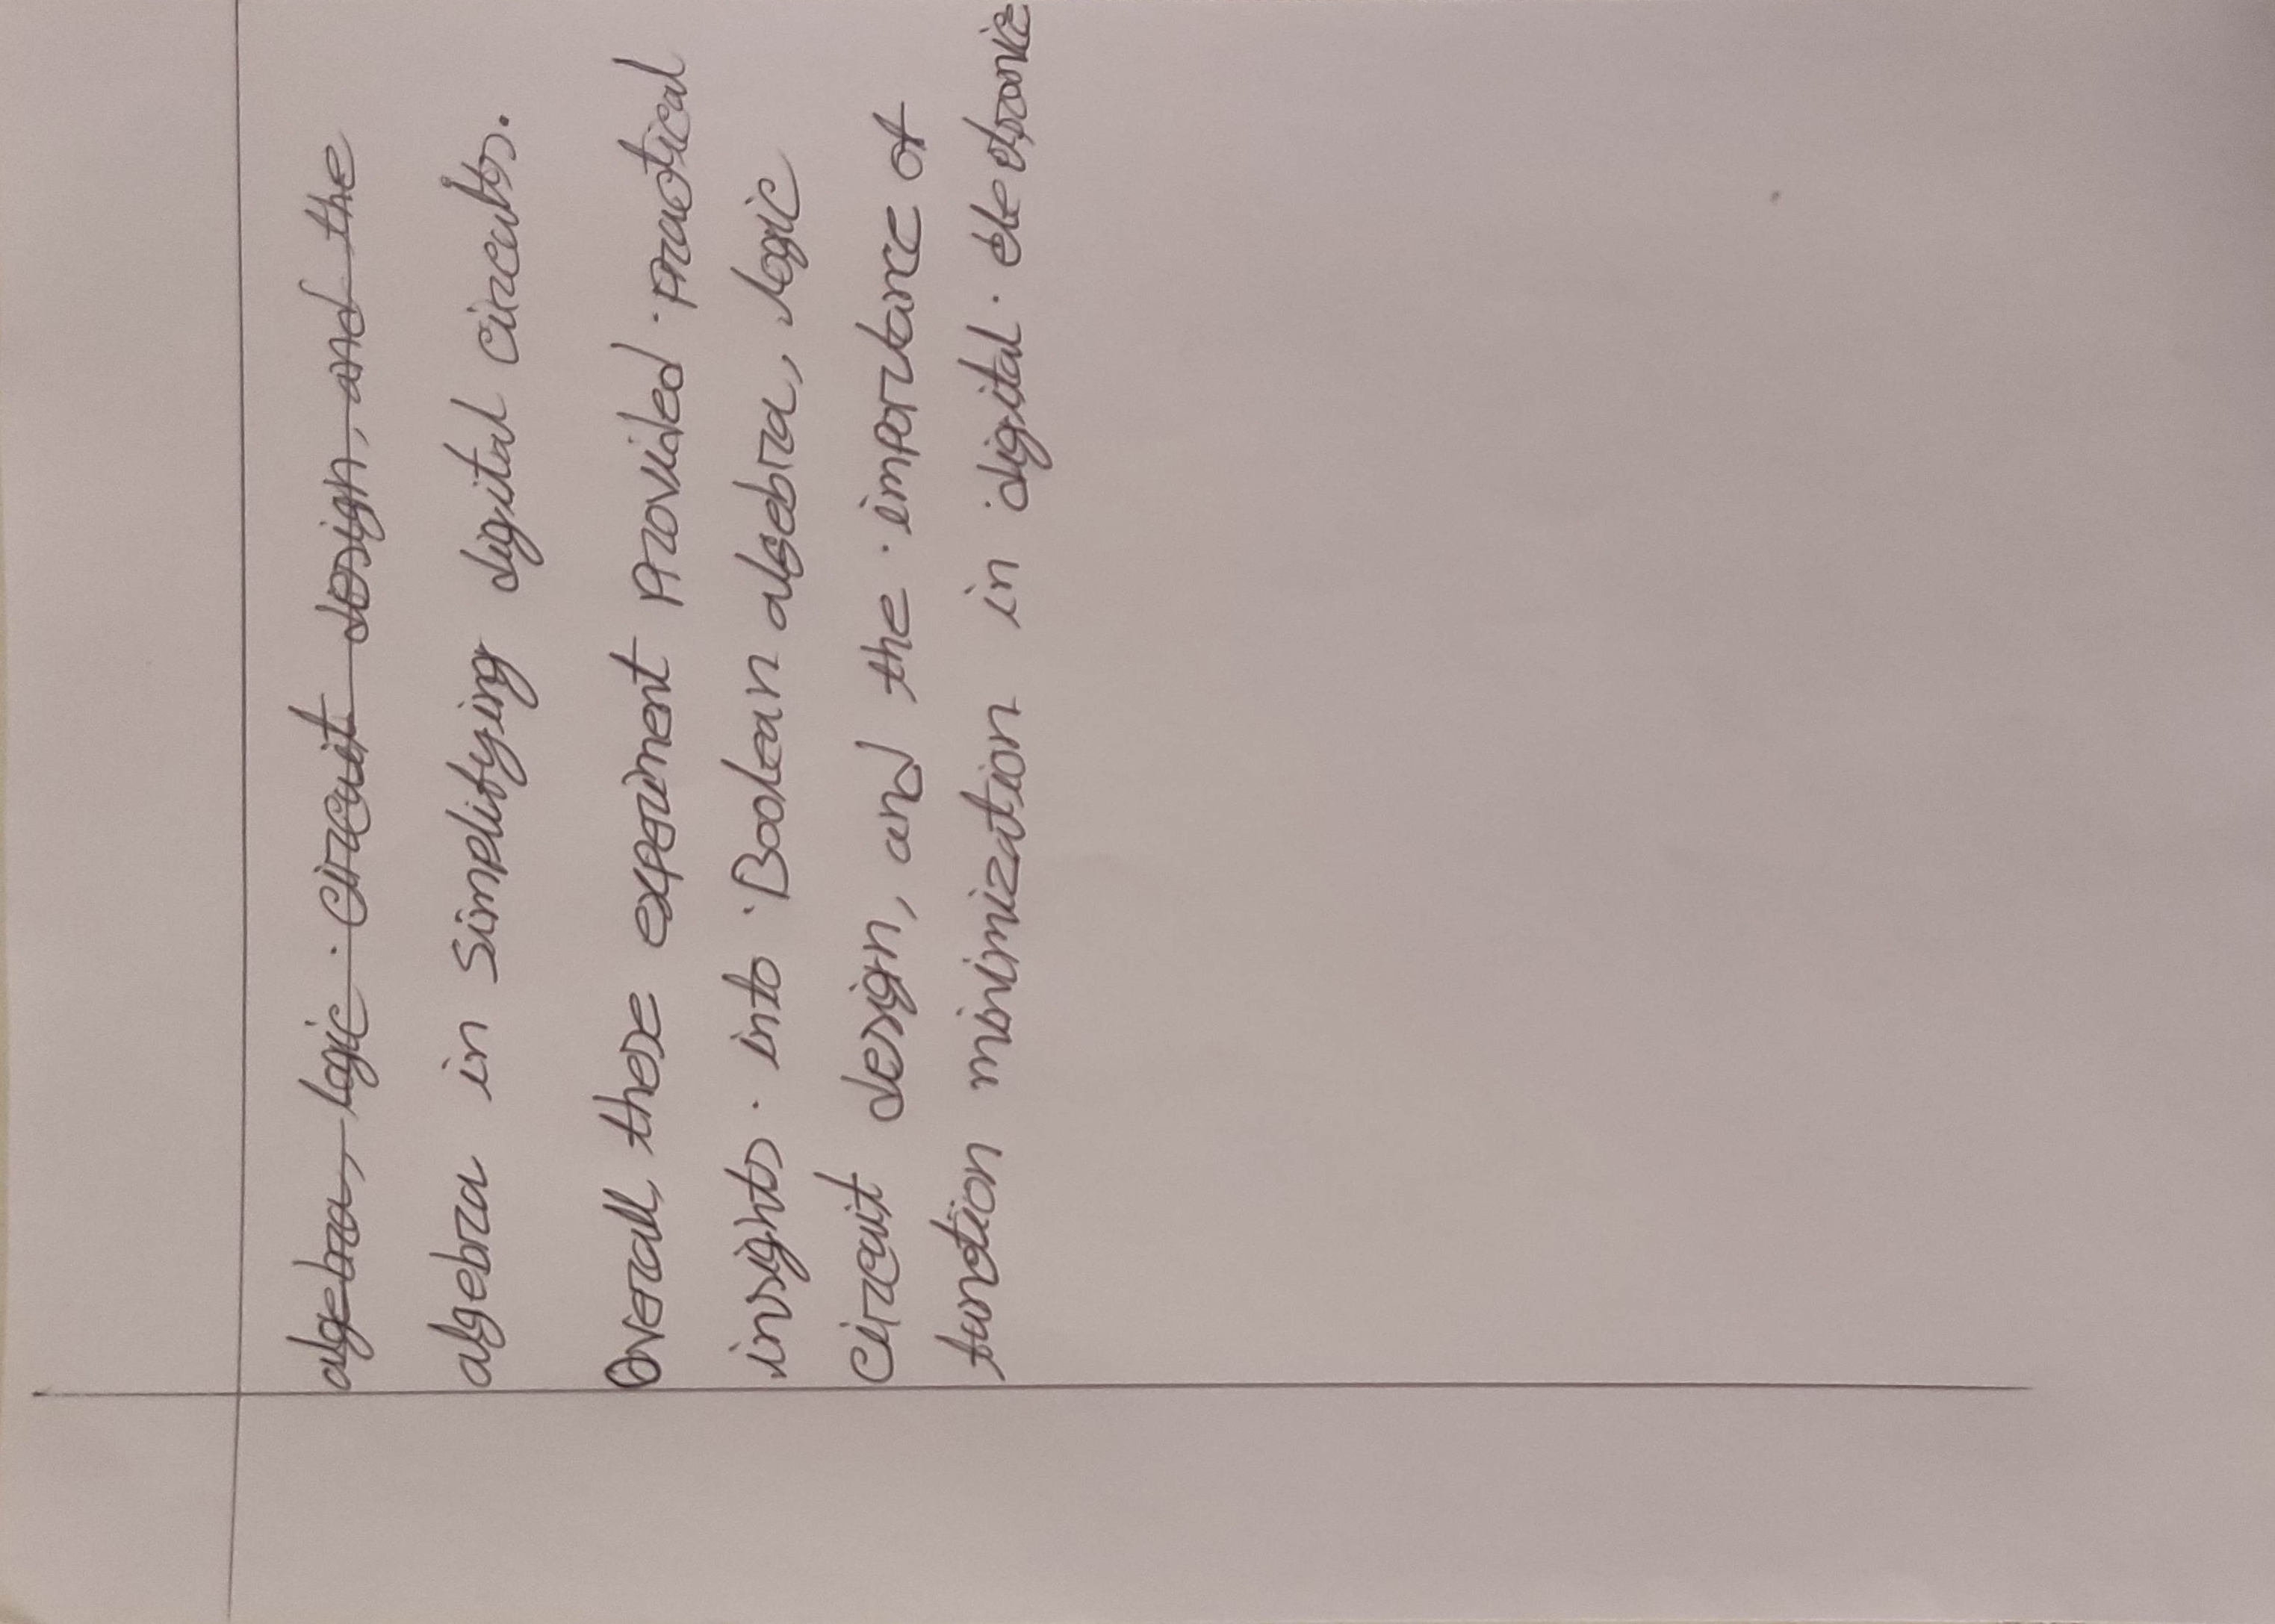 algebra, logic circuit design, and the
algebra in simplifying digital circuits.
Overall, these experiment provided practical
insights into Boolean algebra, logic
circuit design, and the importance of
function minimization in digital electronic